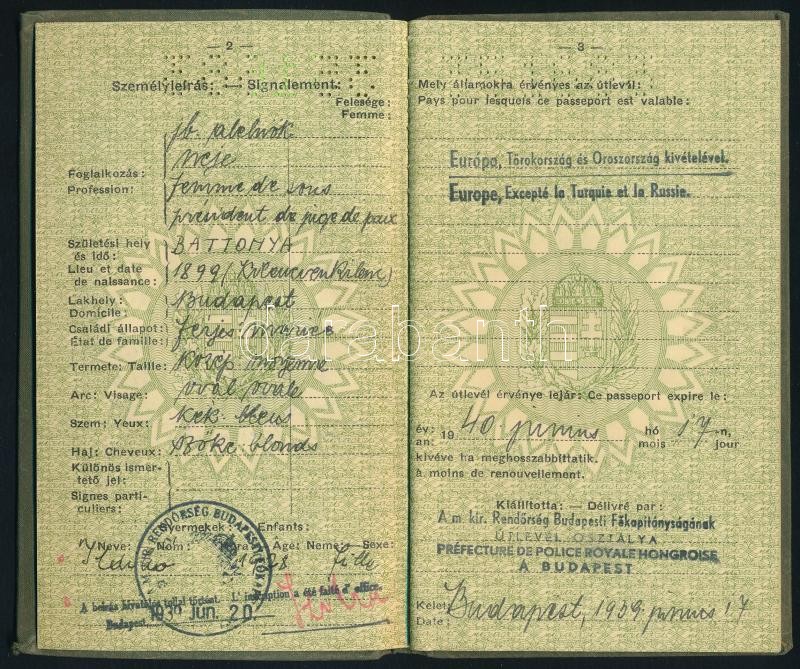 — 2 —
Személyleírás: — Signalement:
Felesége:
Femme:
tb. alelnök
neje
Foglalkozás:
Profession: femme de sous
président de juge de paix
Születési hely
és idő: BATTONYA
Lieu et date
de naissance: 1899
Lakhely: Budapest
Domicile:
Családi állapot: férjes mariée
État de famille:
Termete: Taille: közép moyenne
Arc: Visage: ovál ovale
Szem: Yeux: kék bleus
Haj: Cheveux: szőke blonds
Különös ismer-
tető jel:
Signes parti-
culiers:
Gyermekek: Enfants:
Neve: Nom: Kora: Age: Neme: Sexe:
Ildikó 1928 fille
A beírás hivatalos tollal történt. L' inscription a été faite d' office.
Budapest, 1939 JUN. 20.
— 3 —
Mely államokra érvényes az útlevél:
Pays pour lesquels ce passeport est valable:
Európa, Törokország és Oroszország kivételével.
Europe, Excepté la Turquie et la Russie.
darabanth
Az útlevél érvénye lejár: Ce passeport expire le:
év: 1940 junius hó 17-n,
an: mois jour
kivéve ha meghosszabbittatik.
à moins de renouvellement.
Kiállította: — Délivré par:
A m. kir. Rendőrség Budapesti Főkapitányságának
ÚTLEVÉL OSZTÁLYA
PRÉFECTURE DE POLICE ROYALE HONGROISE
A BUDAPEST
Kelet: Budapest, 1939 junius 17
Date: